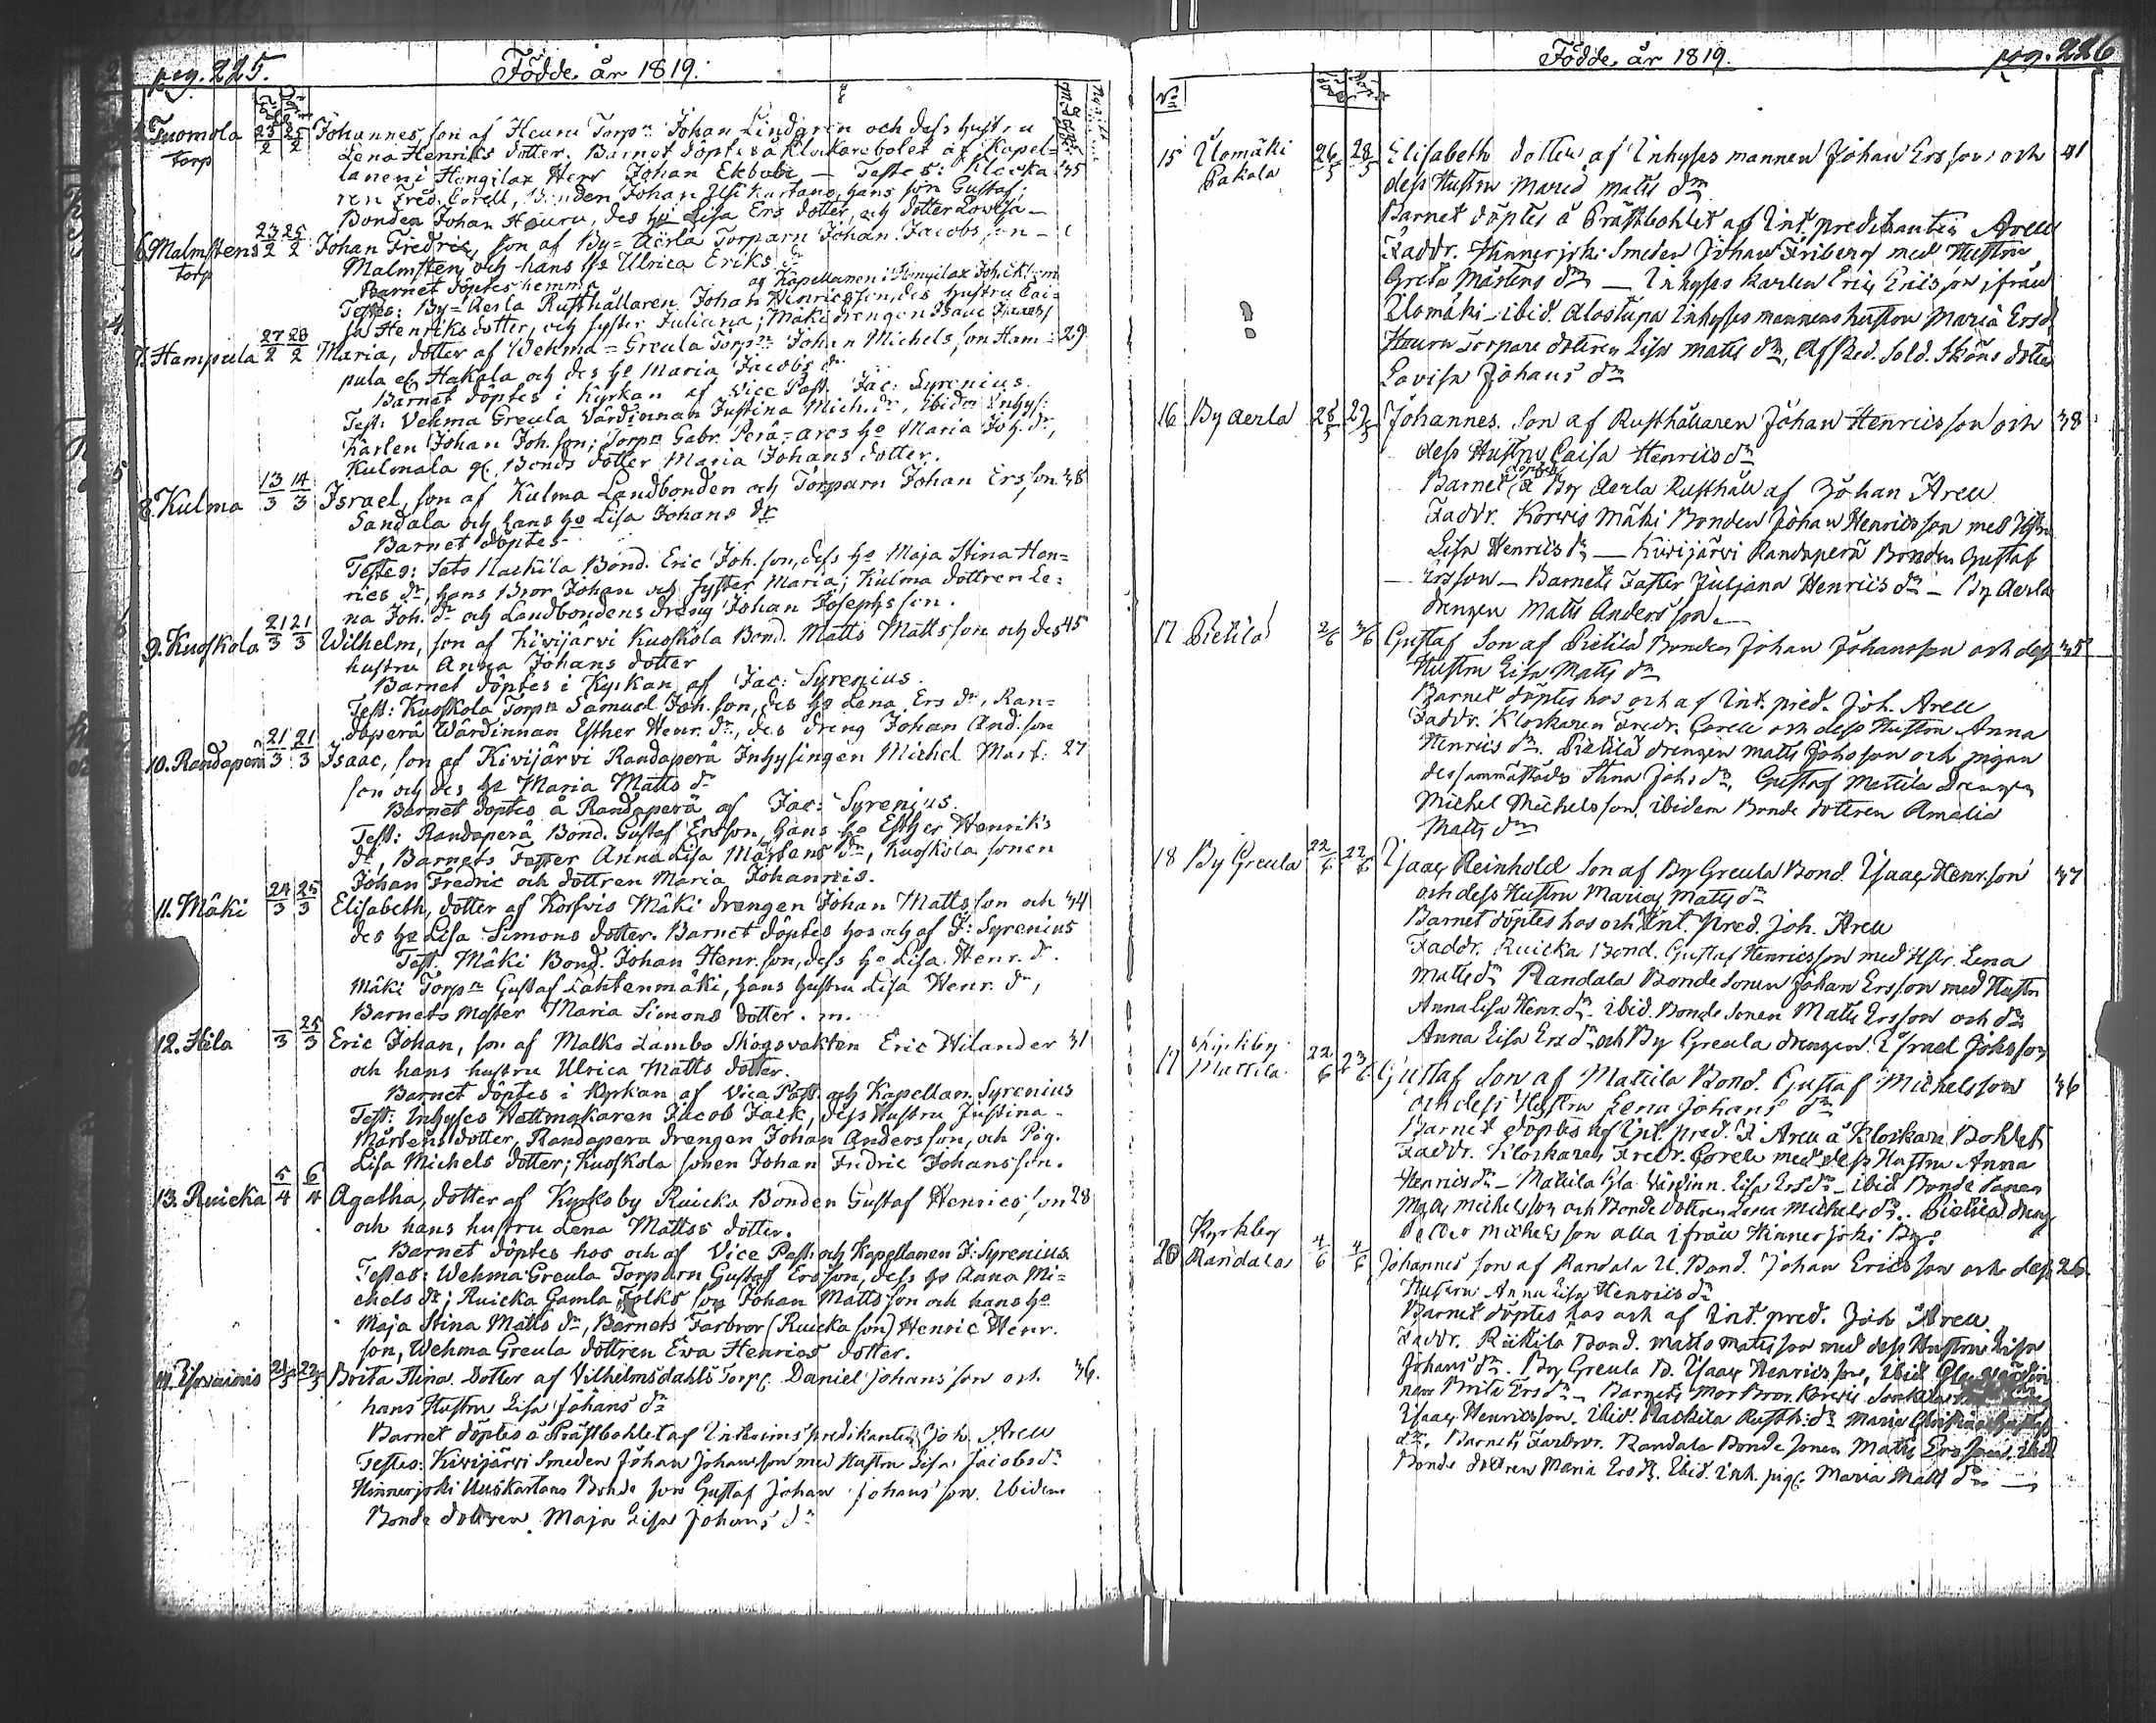 pag. 225.
Födde år 1819.
Tuomola 23/2 25/2 Johannes, son af Heuru Torpn Johan Lindgren och dess hustru
torp Lena Henriks dotter. Barnet döptes å Klockarebolet af Kapel=
lanen i Hengilax Herr Johan Ekbom — Testes: Klocka 35
ren Fred. Corell, Bonden Johan Usikartano, hans son Gustaf;
Bonden Johan Heuru, des hu Lisa Ers dotter, och dotter Lowisa —
6. Malmstens 23/2 25/2 Johan Fredric, son af By=Aerla Torparn Johan Jacobs son —
torp Malmsten och hans hu Ulrica Eriks dr
Barnet döptes hemma af Kapellanen i Hengilax Joh. Ekbom
Testes: By=Aerla Rusthållaren Johan Henricsson, des hustru Cai=
sa Henriksdotter, och syster Juliana; Mäki drengen Isaac
7. Hampula 27/2 28/2 Maria, dotter af Wehma=Greula Torpn Johan Michels son Ham= 29
pula el. Hakala och des hu Maria Jacobs dr
Barnet döptes i Kyrkan af Vice Past. Jac: Syrenius.
Test: Vehma Greula Värdinnan Justina Mich. dr, ibidm Inhys:
kärlen Johan Joh. son; Torpn Gabr. Perä=ares hu Maria Joh. dr,
Kulmala gl. Bonds dotter Maria Johans dotter.
8. Kulma 13/3 14/3 Israel, son af Kulma Landbonden och Torparn Johan Ers son 38
Sandala och hans hu Lisa Johans dr
Barnet döptes
Testes: Sato Kackila Bond. Eric Joh. son, dess hu Maja Stina Hen=
rics dr, hans Bror Johan och syster Maria; Kulma dottren Le=
na Joh. dr och Landbondens dreng Johan Josephs son.
9. Kuoskola 21/3 21/3 Wilhelm, son af Kivijärvi Kuoskola Bond. Matts Mattsson och des 45
hustru Anna Johans dotter
Barnet döptes i Kyrkan af Jac: Syrenius.
Test: Kuoskola Torpn Samuel Joh. son, des hu Lena Ers dr, Ran=
daperä Wärdinnan Esther Henr. dr, des dreng Johan And. son
10. Randaperä 21/3 21/3 Isaac, son af Kivijärvi Randaperä Inhysingen Michel Mårt: 27
son och des hu Maria Matts dr
Barnet döptes å Randaperä af Jac: Syrenius.
Test: Randaperä Bond. Gustaf Ersson, hans hu Esther Henriks
dr, Barnets Faster Anna Lisa Mårtens dr, Kuoskola sonen
Johan Fredric och dottren Maria Johannis.
11. Mäki 24/3 25/3 Elisabeth, dotter af Korfwis Mäki drengen Johan Matts son och 34
des hu Lisa Simons dotter. Barnet döptes hos och af J: Syrenius
Test. Mäki Bond. Johan Henr. son, dess hu Lisa Henr. dr.
Mäki Torpn Gustaf Lahtenmäki, hans hustru Lisa Henr. dr,
Barnets Moster Maria Simons dotter. m.
12. Hila /3 25/3 Eric Johan, son af Malko Lambo Skogsvakten Eric Wilander 31
och hans hustru Ulrica Matts dotter.
Barnet döptes i Kyrkan af Vice Past. och Kapellan. Syrenius
Test: Inhyses Wattmakaren Jacob Falk, dess Hustru Justina
Mårtens dotter, Randapera drengen Johan Anders son, och Pig.
Lisa Michels dotter; Kuoskola sonen Johan Fredric Johansson.
13. Ruicka 5/4 6/4 Agatha, dotter af Kyrkoby Ruicka Bonden Gustaf Henrics son 28
och hans hustru Lena Mattss dotter.
Barnet döptes hos och af Vice Past. och Kapellanen J: Syrenius.
Testes: Wehma Greula Torparn Gustaf Ersson, dess hu Anna Mi=
chels dr; Ruicka Gamla Folks son Johan Mattsson och hans hu
Maja Stina Matts dr, Barnets Farbror (Ruicka son) Henric Henr.
son, Wehma Greula dottren Ewa Henrics dotter.
14. 21/5 22/5 Brita Stina Dotter af Vilhelmsdahls Torp. Daniel Johans son och 36.
hans Hustru Lisa Johans dr
Barnet döptes å Prästbohlet af Interims predikanten Joh. Arell
Testes: Kivijärvi Smeden Johan Johansson med Hustru Lisa Jacobs dr
Hinnerjoki Uusikartano Bonde son Gustaf Johan Johans son. Ibidem
Bonde dottren Maja Lisa Johans dr
Födde år 1819.
pag. 226
No
15 Ulomäki 26/5 28/5 Elisabeth dotter af Inhyses mannen Johan Ersson och 41
Pakala dess Hustru Maria Matts dr
Barnet döptes å Prästbohlet af Int. predikanten Arell
Faddr. Hinnerjoki Smeden Johan Friberg med Hustru
Greta Mårtens dr — Inhyses karlen Eric Ericsson ifrån
Ulomäki — ibid. Alostupa Inhyses mannens hustru Maria Ers d
Heuru Torpare dottren Lisa Matts dr, Afsked. Sold. Sköns dotter
Lovisa Johans dr
16 By Aerla 28/5 29/5 Johannes. Son af Rusthållaren Johan Henricsson och 38
dess Hustru Caisa Henrics dr
Barnet döptes å By Aerla Rusthåll af Johan Arell
Faddr. Korwis Mäki Bonden Johan Henricsson med Hustru
Lisa Henrics dr — Kivijärvi Randaperä Bonden Gustaf
Ersson — Barnets Faster Juljana Henrics dr — By Aerla
drengen Matts Andersson —
17 Pietilä 2/6 3/6 Gustaf Son af Pietilä Bonden Johan Johansson och dess 35
Hustru Lisa Matts dr
Barnet döptes hos och af Int. pred. Joh. Arell
Faddr. Klockaren Fredr. Corell och dess Hustru Anna
Henrics dr. Pietilä drengen Matts Johsson och pigan
dessammastädes Stina Johs dr, Gustaf Mattila drengen
Michel Michelsson, ibidem Bonde dottren Amalia
Matts dr
18 By Greula 22/6 22/6 Isaac Reinhold Son af By Greula Bond. Isaac Henr. son 37
och dess Hustru Maria Matts dr
Barnet döptes hos och Int. pred. Joh. Arell
Faddr. Ruicka Bond. Gustaf Henricsson med Hstr. Lena
Matts dr Randala Bonde Sonen Johan Ersson med Hustru
Anna Lisa Henr. dr. ibid. Bonde Sonen Matts Ersson och dr
Anna Lisa Ers dr och By Greula drengen Israel Johsson
Kyrkby
19 Mattila 22/6 23/6 Gustaf Son af Mattila Bond. Gustaf Michelsson 36
och dess Hustru Lena Johans dr
Barnet döptes af Int. pred. J Arell å Klockare Bohlet
Faddr. Klockaren Fredr. Corell med dess Hustru Anna
Henrics dr — Mattila Gla Värdinn. Lisa Ers dr — ibid Bonde Sonen
Matts Michelsson och Bonde dottren Lena Michels dr. Pietilä dreng
Michelsson alla ifrån Hinnerjoki By.
Kyrkby
20 Randala 4/6 4/6 Johannes son af Randala U. Bond. Johan Ericsson och dess 26.
Hustru Anna Lisa Henrics dr
Barnet döptes hos och af Int. pred. Joh Arell
Faddr. Riikilä Bond. Matts Mattsson med dess Hustru Lisa
Johans dr. By Greula B. Isaac Henricsson, Ibid Gla Värdin
nan Brita Ers dr — Barnets Mor Bror Korwis
Isaac Henricsson. Ibid. Kackila Rusth: dr Maria
dr. Barnets Farbror. Randala Bonde Sonen Matts Ersson. ibid
Bonde dottren Maria Ers dr. Ibid. Inh. pig. Maria Matts dr —